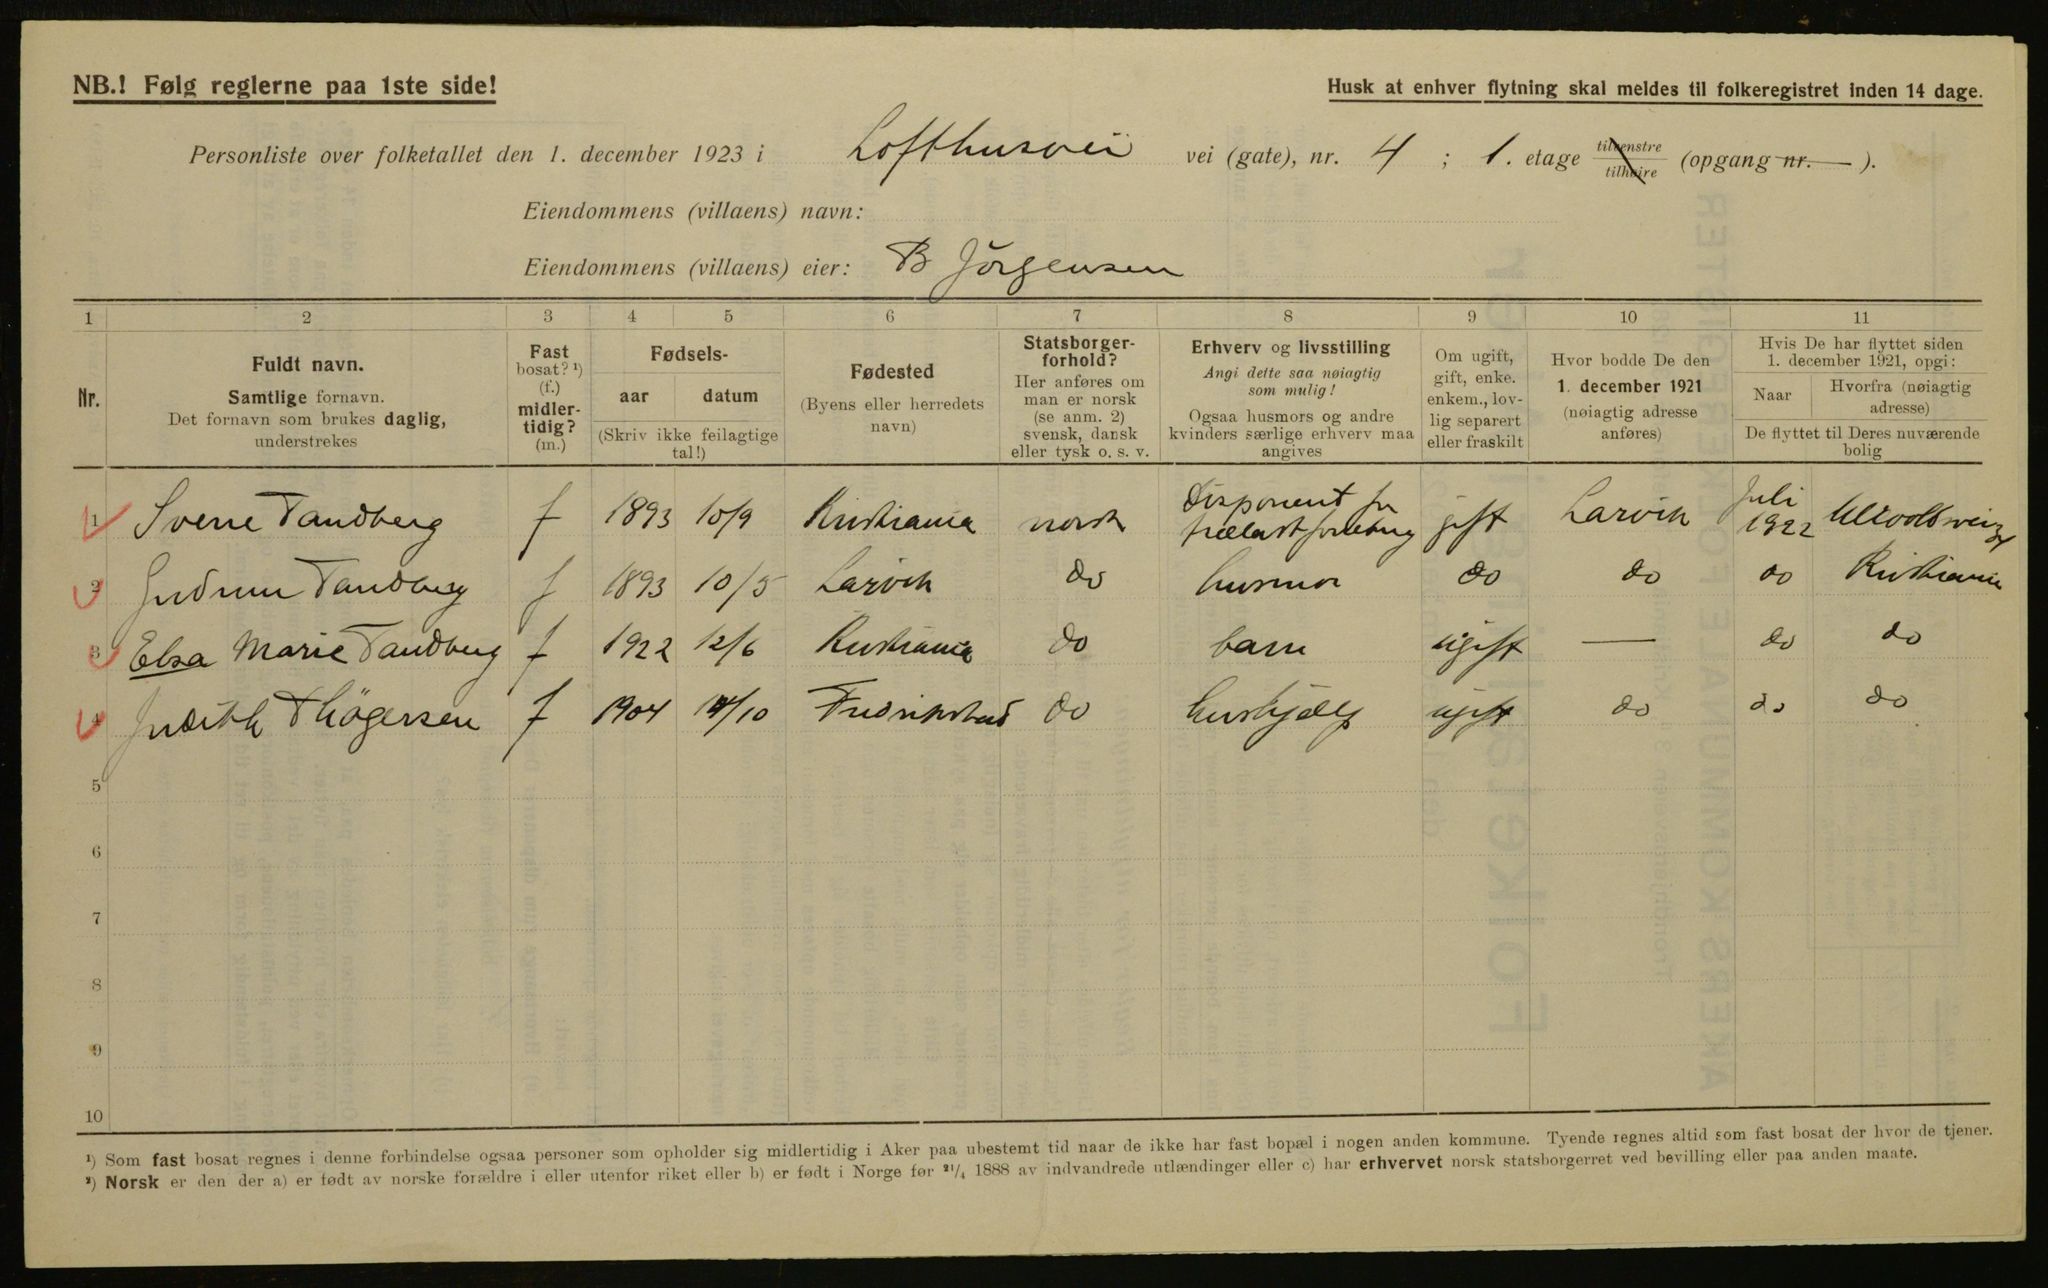 NB.! Følg reglerne paa 1ste side!
Husk at enhver flytning skal meldes til folkeregistret inden 14 dage.
Personliste over folketallet den 1. december 1923 i Lofthusvei vei (gate), nr. 4 ; 1. etage tilvenstre tilhøire (opgang nr. — ).
Eiendommens (villaens) navn:
Eiendommens (villaens) eier: B Jörgensen
1 2 3 4 5 6 7 8 9 10 11
Nr.
Fuldt navn.
Samtlige fornavn.
Det fornavn som brukes daglig,
understrekes
Fast
bosat? ¹)
(f.)
midler-
tidig?
(m.)
Fødsels-
aar datum
(Skriv ikke feilagtige
tal!)
Fødested
(Byens eller herredets
navn)
Statsborger-
forhold?
Her anføres om
man er norsk
(se anm. 2)
svensk, dansk
eller tysk o. s. v.
Erhverv og livsstilling
Angi dette saa nøiagtig
som mulig!
Ogsaa husmors og andre
kvinders særlige erhverv maa
angives
Om ugift,
gift, enke.
enkem., lov-
lig separert
eller fraskilt
Hvor bodde De den
1. december 1921
(nøiagtig adresse
anføres)
Hvis De har flyttet siden
1. december 1921, opgi:
Naar
Hvorfra (nøiagtig
adresse)
De flyttet til Deres nuværende
bolig
1 Sverre Tandberg f 1893 10/9 Kristiania norsk Disponent for gift Larvik Juli 1922
2 Gudrun Tandberg f 1893 10/5 Larvik do husmor do do do Kristiania
3 Elsa Marie Tandberg f 1922 12/6 Kristiania do barn ugift — do do
4 Judith Thögersen f 1904 /10 Fredrikstad do hushjælp ugift do do do
5
6
7
8
9
10
¹) Som fast bosat regnes i denne forbindelse ogsaa personer som opholder sig midlertidig i Aker paa ubestemt tid naar de ikke har fast bopæl i nogen anden kommune. Tyende regnes altid som fast bosat der hvor de tjener.
²) Norsk er den der a) er født av norske forældre i eller utenfor riket eller b) er født i Norge før ²¹/₄ 1888 av indvandrede utlændinger eller c) har erhvervet norsk statsborgerret ved bevilling eller paa anden maate.